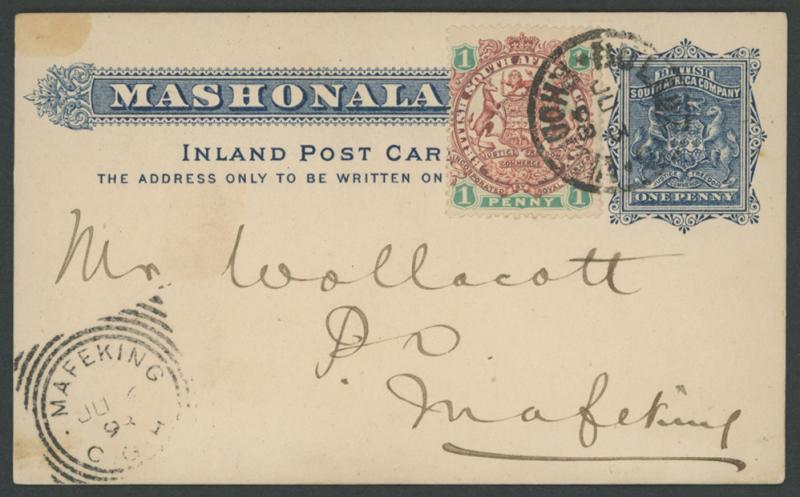 MASHONALA
INLAND POST CAR
THE ADDRESS ONLY TO BE WRITTEN ON
1 1
JUSTICE
COMMERCE
INCORPORATED ROYAL
1 PENNY 1
BRITISH
SOUTH AFRICA COMPANY
ONE PENNY
Mr Wollacott
P.O.
Mafeking
MAFEKING
JU